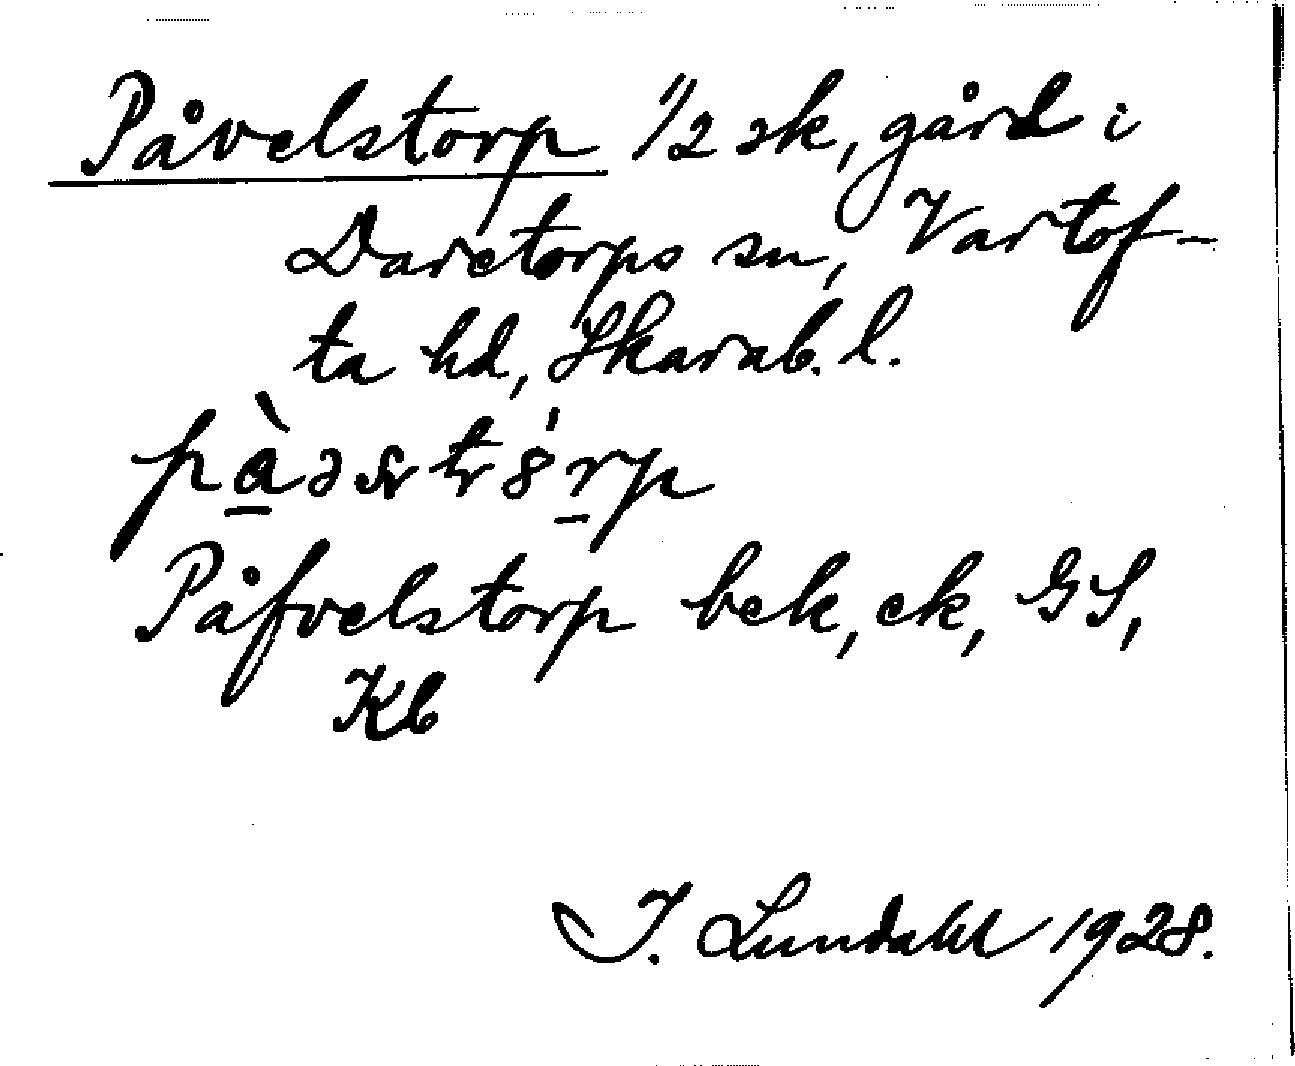 Påvelstorp 1/2 sk, gård i
Daretorps sn, Vartof-
ta hd, Skarab. l.
Påfvelstorp bek, ek, GS,
Kb
I. Lundahl 1928.